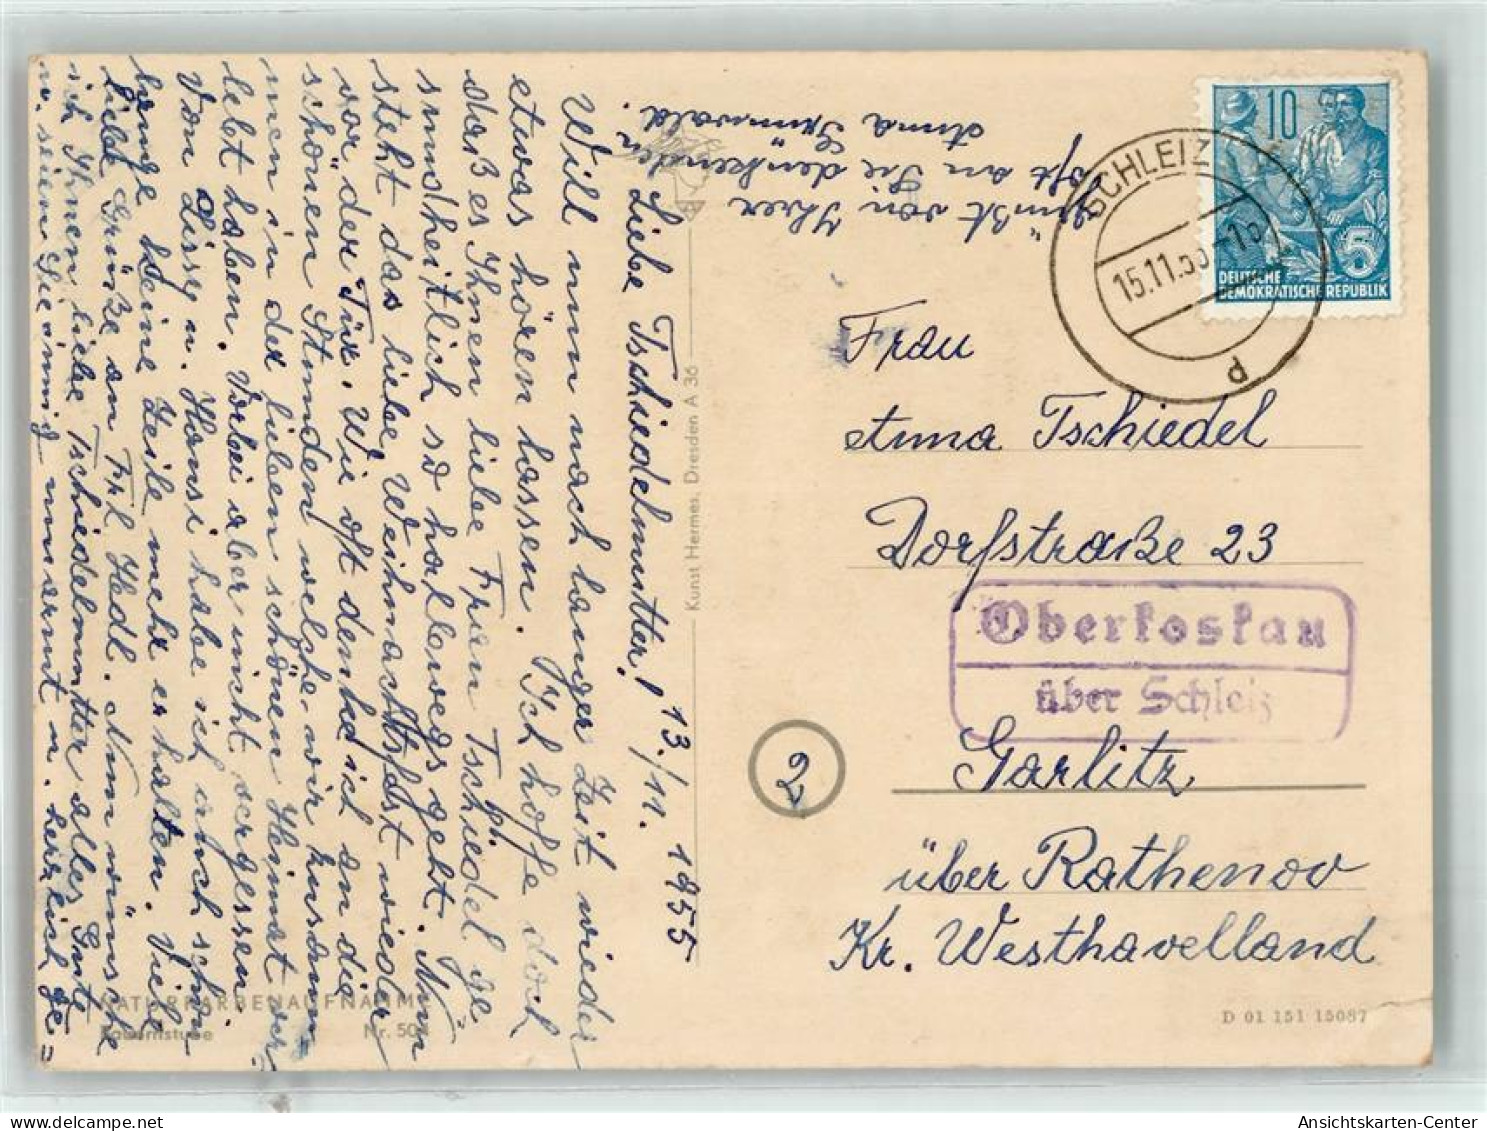 13./11. 1955
Liebe Tschiedelmutter!
Will nun nach langer Zeit wieder
etwas hören lassen. Ich hoffe doch
daß es Ihnen liebe Frau Tschiedel ge=
sundheitlich so halbwegs geht. Nun
steht das liebe Weihnachtsfest wieder
vor der Tür. Wie oft denke ich an die
schönen Stunden welche wir zusam=
men in der lieben schönen Heimat ver=
lebt haben. Vorbei aber nicht vergessen.
Von Lissy u. Hansi habe ich auch schon
lange keine Zeile mehr erhalten. Viele
liebe Grüße an Frl Hedl. Nun wünsche
ich Ihnen liebe Tschiedelmutter alles Gute
u. seien Sie innig umarmt u. herzlich ge=
grüßt von Ihrer
oft an Sie denkenden
Anna
NATURFARBENAUFNAHME
Bauernstube Nr. 50
Kunst Hermes, Dresden A 36
10
DEUTSCHE
DEMOKRATISCHE REPUBLIK
5
SCHLEIZ
15.11.
d
Frau
Anna Tschiedel
Dorfstraße 23
Oberkoskau
über Schleiz
Garlitz
2
über Rathenov
Kr. Westhavelland
D 01 151 15087
Ansichtskarten-Center